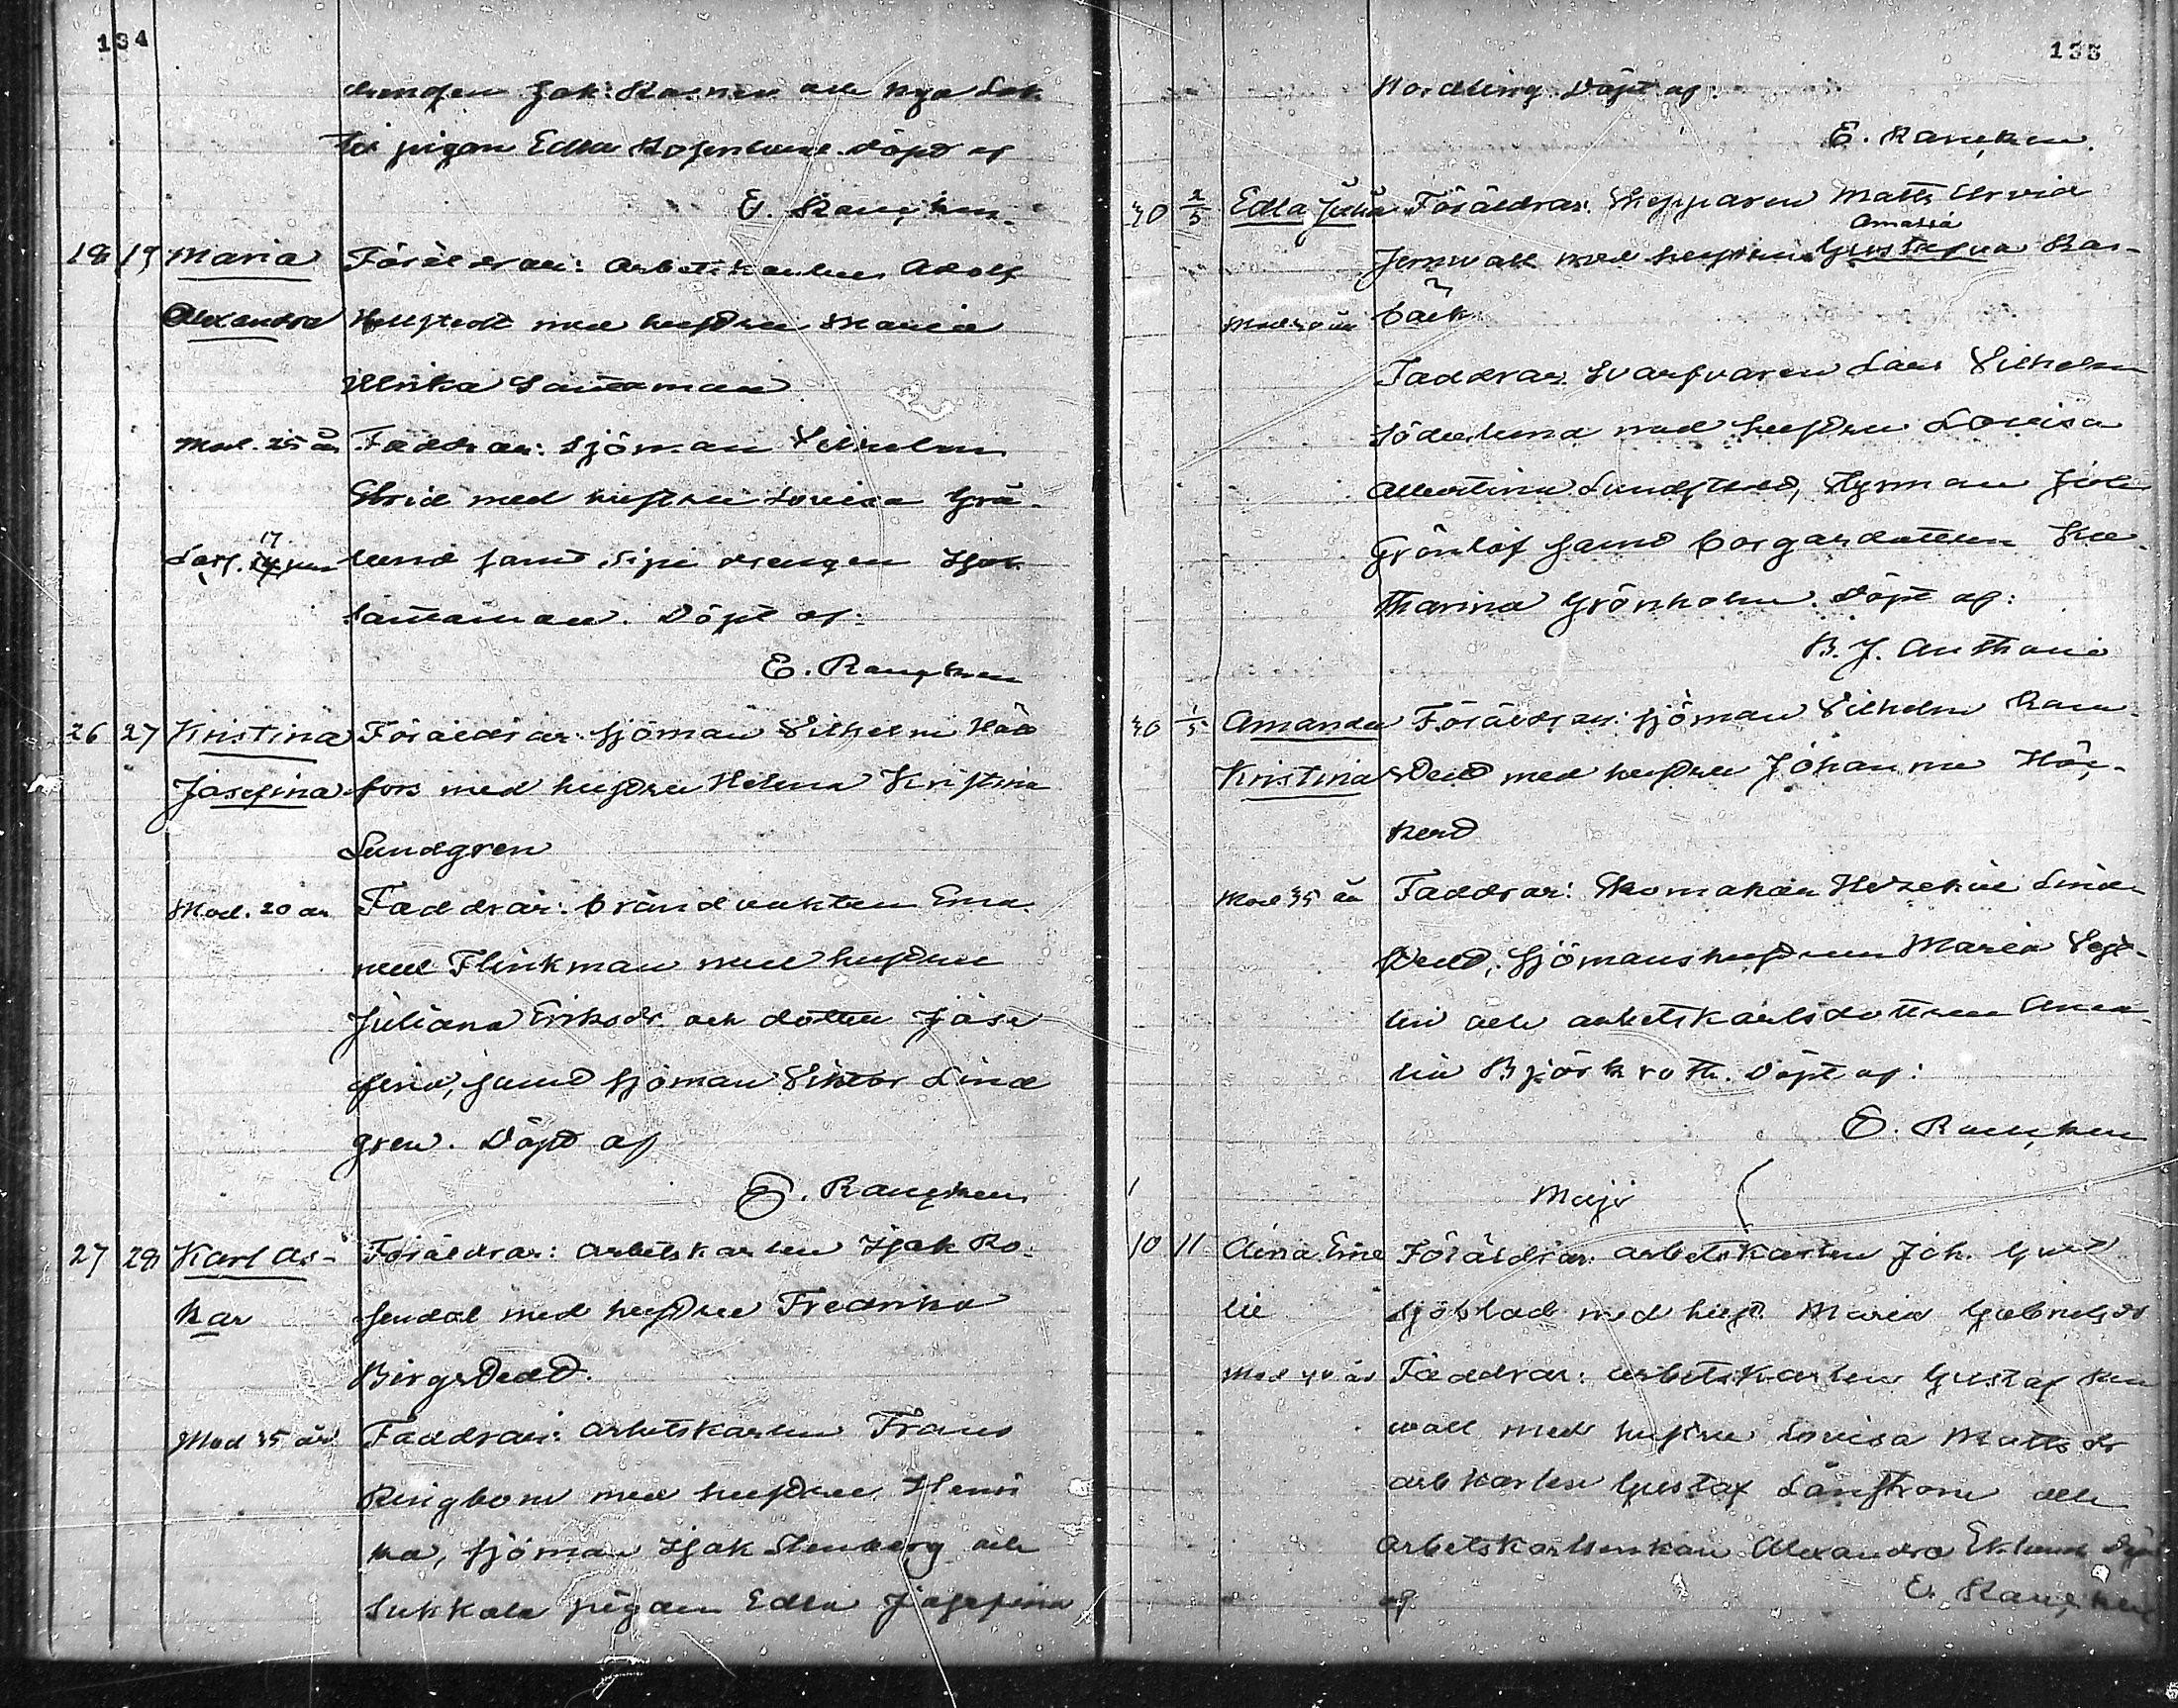 134
drengen Jak: och Nya
pigan Edla döpt af
E. Rancken.
18 19 Maria Föräldrar: arbetskarlen Adolf
Alexandra Hellstedt med hustru Maria
Ulrika Santaman
Mod. 25 år Faddrar: sjöman Vilhelm
Strid med hustru Lovisa Grö-
17
lund samt drengen Isak
Santaman. Döpt af:
E. Rancken
26 27 Kristina Föräldrar: sjöman Vilhelm Hög
Josefina fors med hustru Helena Kristina
Lundgren
Mod. 20 år Faddrar: brandvakten Ema
nuel Flinkman med hustru
Juliana Eriksdr och dotter Jose
fina, samt sjöman Viktor Lind
gren. Döpt af
E. Rancken
27 28 Karl Os- Föräldrar: arbetskarlen Isak Ro-
kar sendal med hustru Fredrika
Birgstedt.
Mod 35 år Faddrar: arbetskarlen Frans
Ringbom med hustru Henri
ka, sjöman Isak Stenberg och
Sukkala pigan Edla Josefina
135
Nordling. Döpt af:
E. Rancken.
30 2/5 Edla Julia Föräldrar: Skepparen Matts Arvid
Amalia
Jernwall med hustru Gustafva Kar-
Mod 40 år bäck
Faddrar: svarfvaren Lars Vilhelm
Söderlund med hustru Lovisa
Albertina Lundstedt, styrman Joh
Grönlöf samt borgardottren Ka-
tharina Grönholm. Döpt af:
B. J. Anthoni
30 1/5 Amanda Föräldrar: sjöman Vilhelm Ram-
Kristina stedt med hustru Johanna Hög-
Mod 35 år Faddrar: Skomakar Hezekiel Lind-
stedt, sjömanshustrun Maria
lin och arbetskarlsdottren Ama-
lia Björkroth. Döpt af:
E. Rancken
Maji
10 11 Aina Emi Föräldrar: arbetskarlen Joh. Gust
lie Sjöblad med hust. Maria Gabrielsdr
Mod 40 år Faddrar: arbetskarlen Gustaf
wall med hustru Lovisa Mattsdr
arbkarlen Gustaf Lönström och
arbetskarlsenkan Alexandra Eklund Döpt
af. E. Rancken